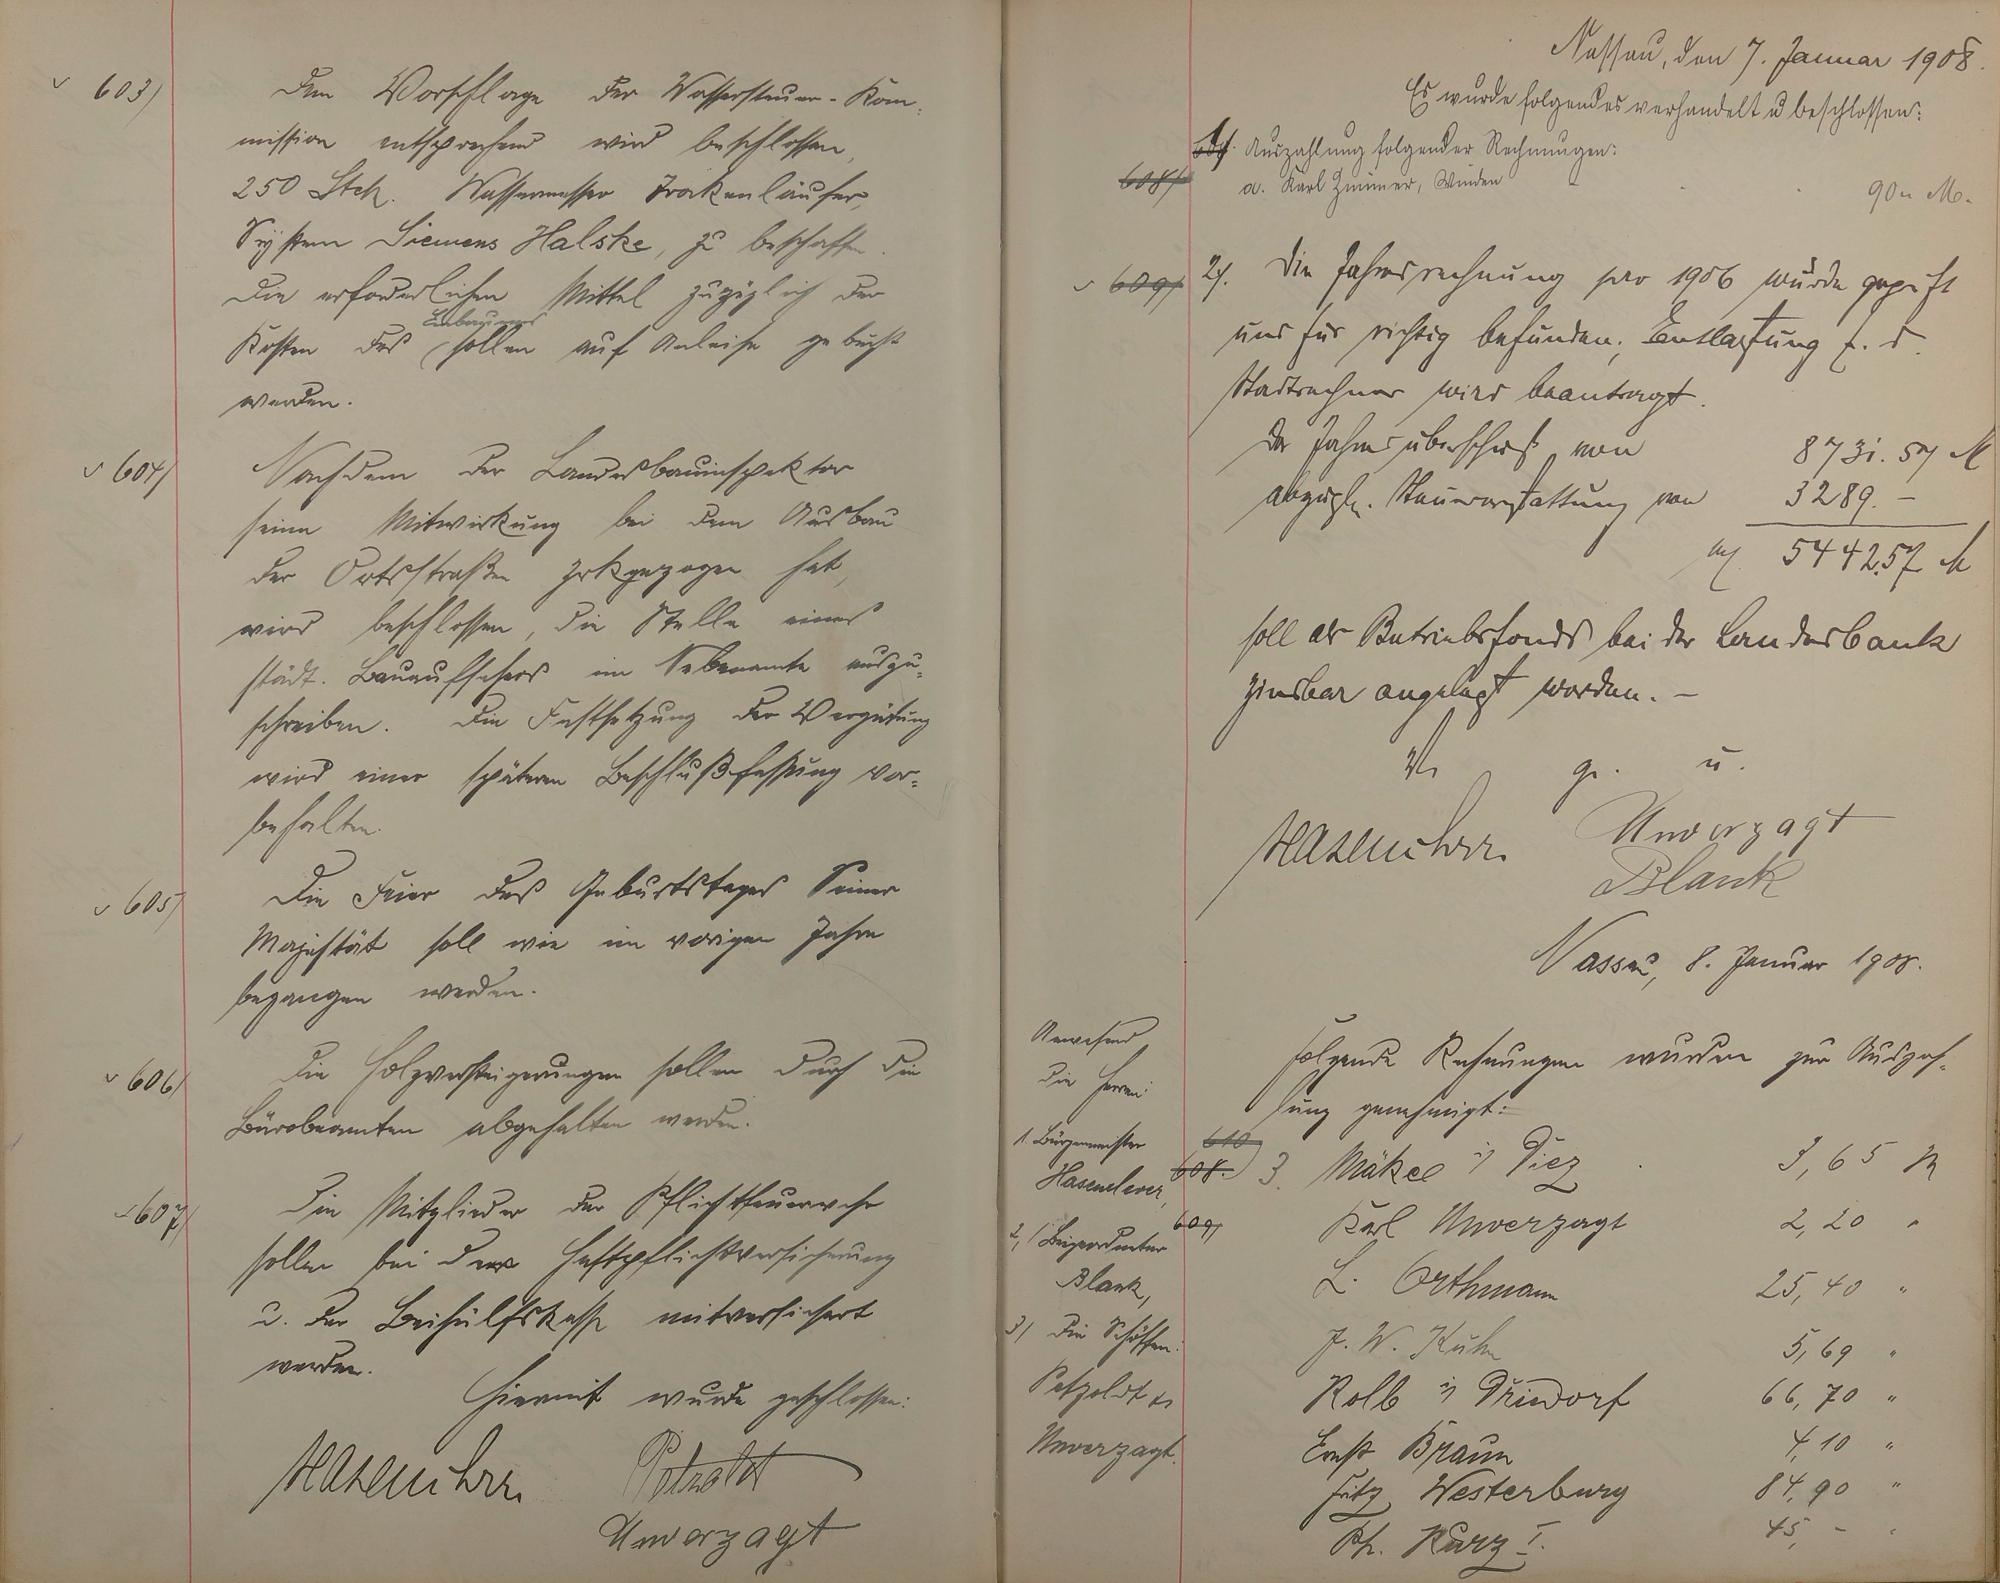 603) Dem Vorschlage der Wassersteuer-Kom-
mission entsprechend wird beschlossen,
250 Stck. Wassermesser Trockenläufer,
System Siemens Halske, zu beschaffen.
Die erforderlichen Mittel zuzüglich der
Einbaues
Kosten des sollen auf Anleihe gebucht
werden.
604) Nachdem der Landesbauinspektor
seine Mitwirkung bei dem Ausbau
der Ortsstraßen zrkgezogen hat,
wird beschlossen, die Stelle eines
städt. Bauaufsehers im Nebenamte auszu-
schreiben. Die Festsetzung der Vergütung
wird einer späteren Beschlußfassung vor-
behalten.
605) Die Feier des Geburtstages Seiner
Majestät soll wie im vorigen Jahre
begangen werden.
606) Die Holzversteigerungen sollen durch die
Bürobeamten abgehalten werden.
607) Die Mitglieder der Pflichtfeuerwehr
sollen bei der Haftpflichtversicherung
u. der Beihülfskasse mitversichert
werden.
Hiermit wurde geschlossen:
Hasenclever Petzoldt
Unverzagt
Nassau, den 7. Januar 1908.
Es wurde folgendes verhandelt u beschlossen:
Auszahlung folgender Rechnungen:
608) a. Karl Zimmer, Winden 90 M.
609) 2). Die Jahresrechnung pro 1906 wurde geprüft
und für richtig befunden; Entlastung f. d.
Stadtrechner wird beantragt.
Der Jahresüberschuß von 8731.57 M
abzügl. Steuererstattung von 3289.–
5442.57 M
soll als Betriebsfonds bei der Landesbank
zinsbar angelegt werden. –
V. g. u.
Hasenclever Unverzagt
Blank
Nassau, 8. Januar 1908.
Anwesend
die Herren:
1. Bürgermeister
Hasenclever,
2) Beigeordneter
Blank,
3) Die Schöffen:
Petzoldt &
Unverzagt.
Folgende Rechnungen wurden zur Auszah-
lung genehmigt:
610
608. 3. Mäkel in Diez 3,65 M
609) Karl Unverzagt 2,20 "
L. Orthmann 25,40 "
J. W. Kuhn 5,69 "
Kolb in Driedorf 66,70 "
Ernst Braun 4,10 "
Fritz Westerburg 84,90 "
Ph. Kurz I. 45,– "